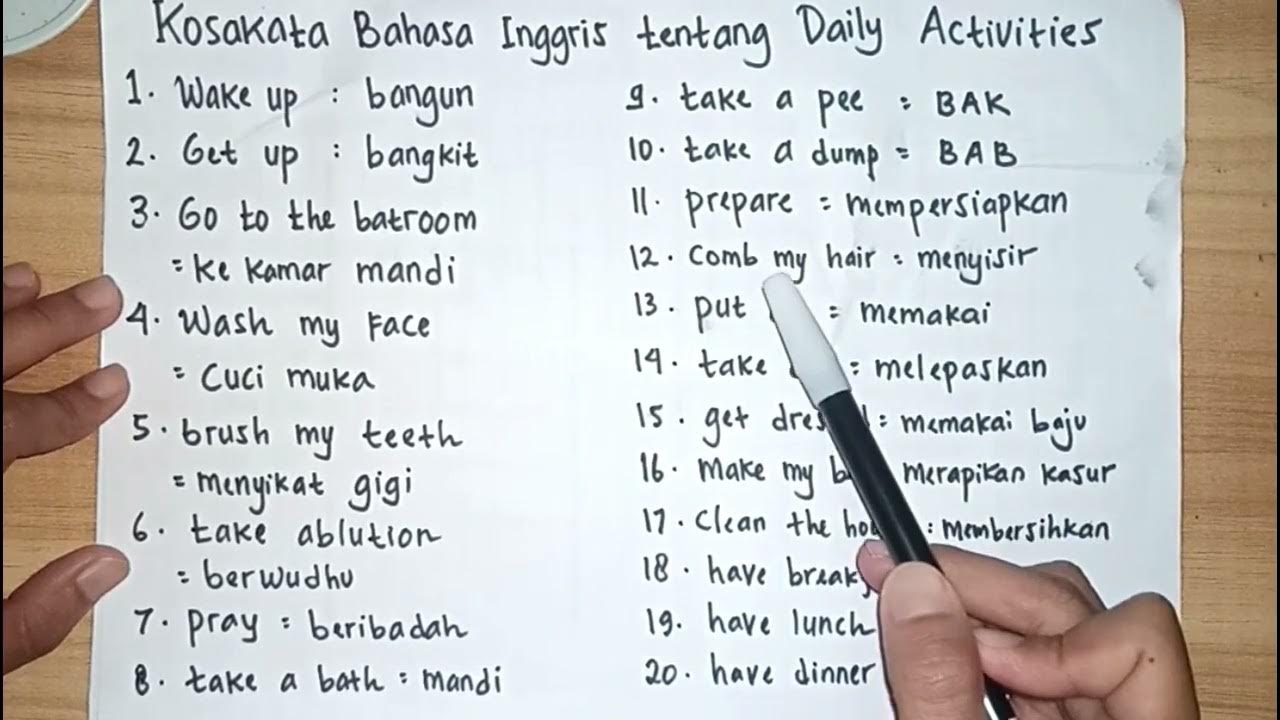 Kosakata Bahasa Inggris tentang Daily Activities
1. Wake up : bangun
2. Get up : bangkit
3. Go to the batroom
= ke kamar mandi
4. Wash my Face
= Cuci muka
5. brush my teeth
= menyikat gigi
6. take ablution
= berwudhu
7. pray = beribadah
8. take a bath = mandi
9. take a pee = BAK
10. take a dump = BAB
11. prepare = mempersiapkan
12. Comb my hair = menyisir
13. put = memakai
14. take = melepaskan
15. get = memakai baju
16. Make my merapikan kasur
17. Clean the : membersihkan
18. have
19. have lunch
20. have dinner